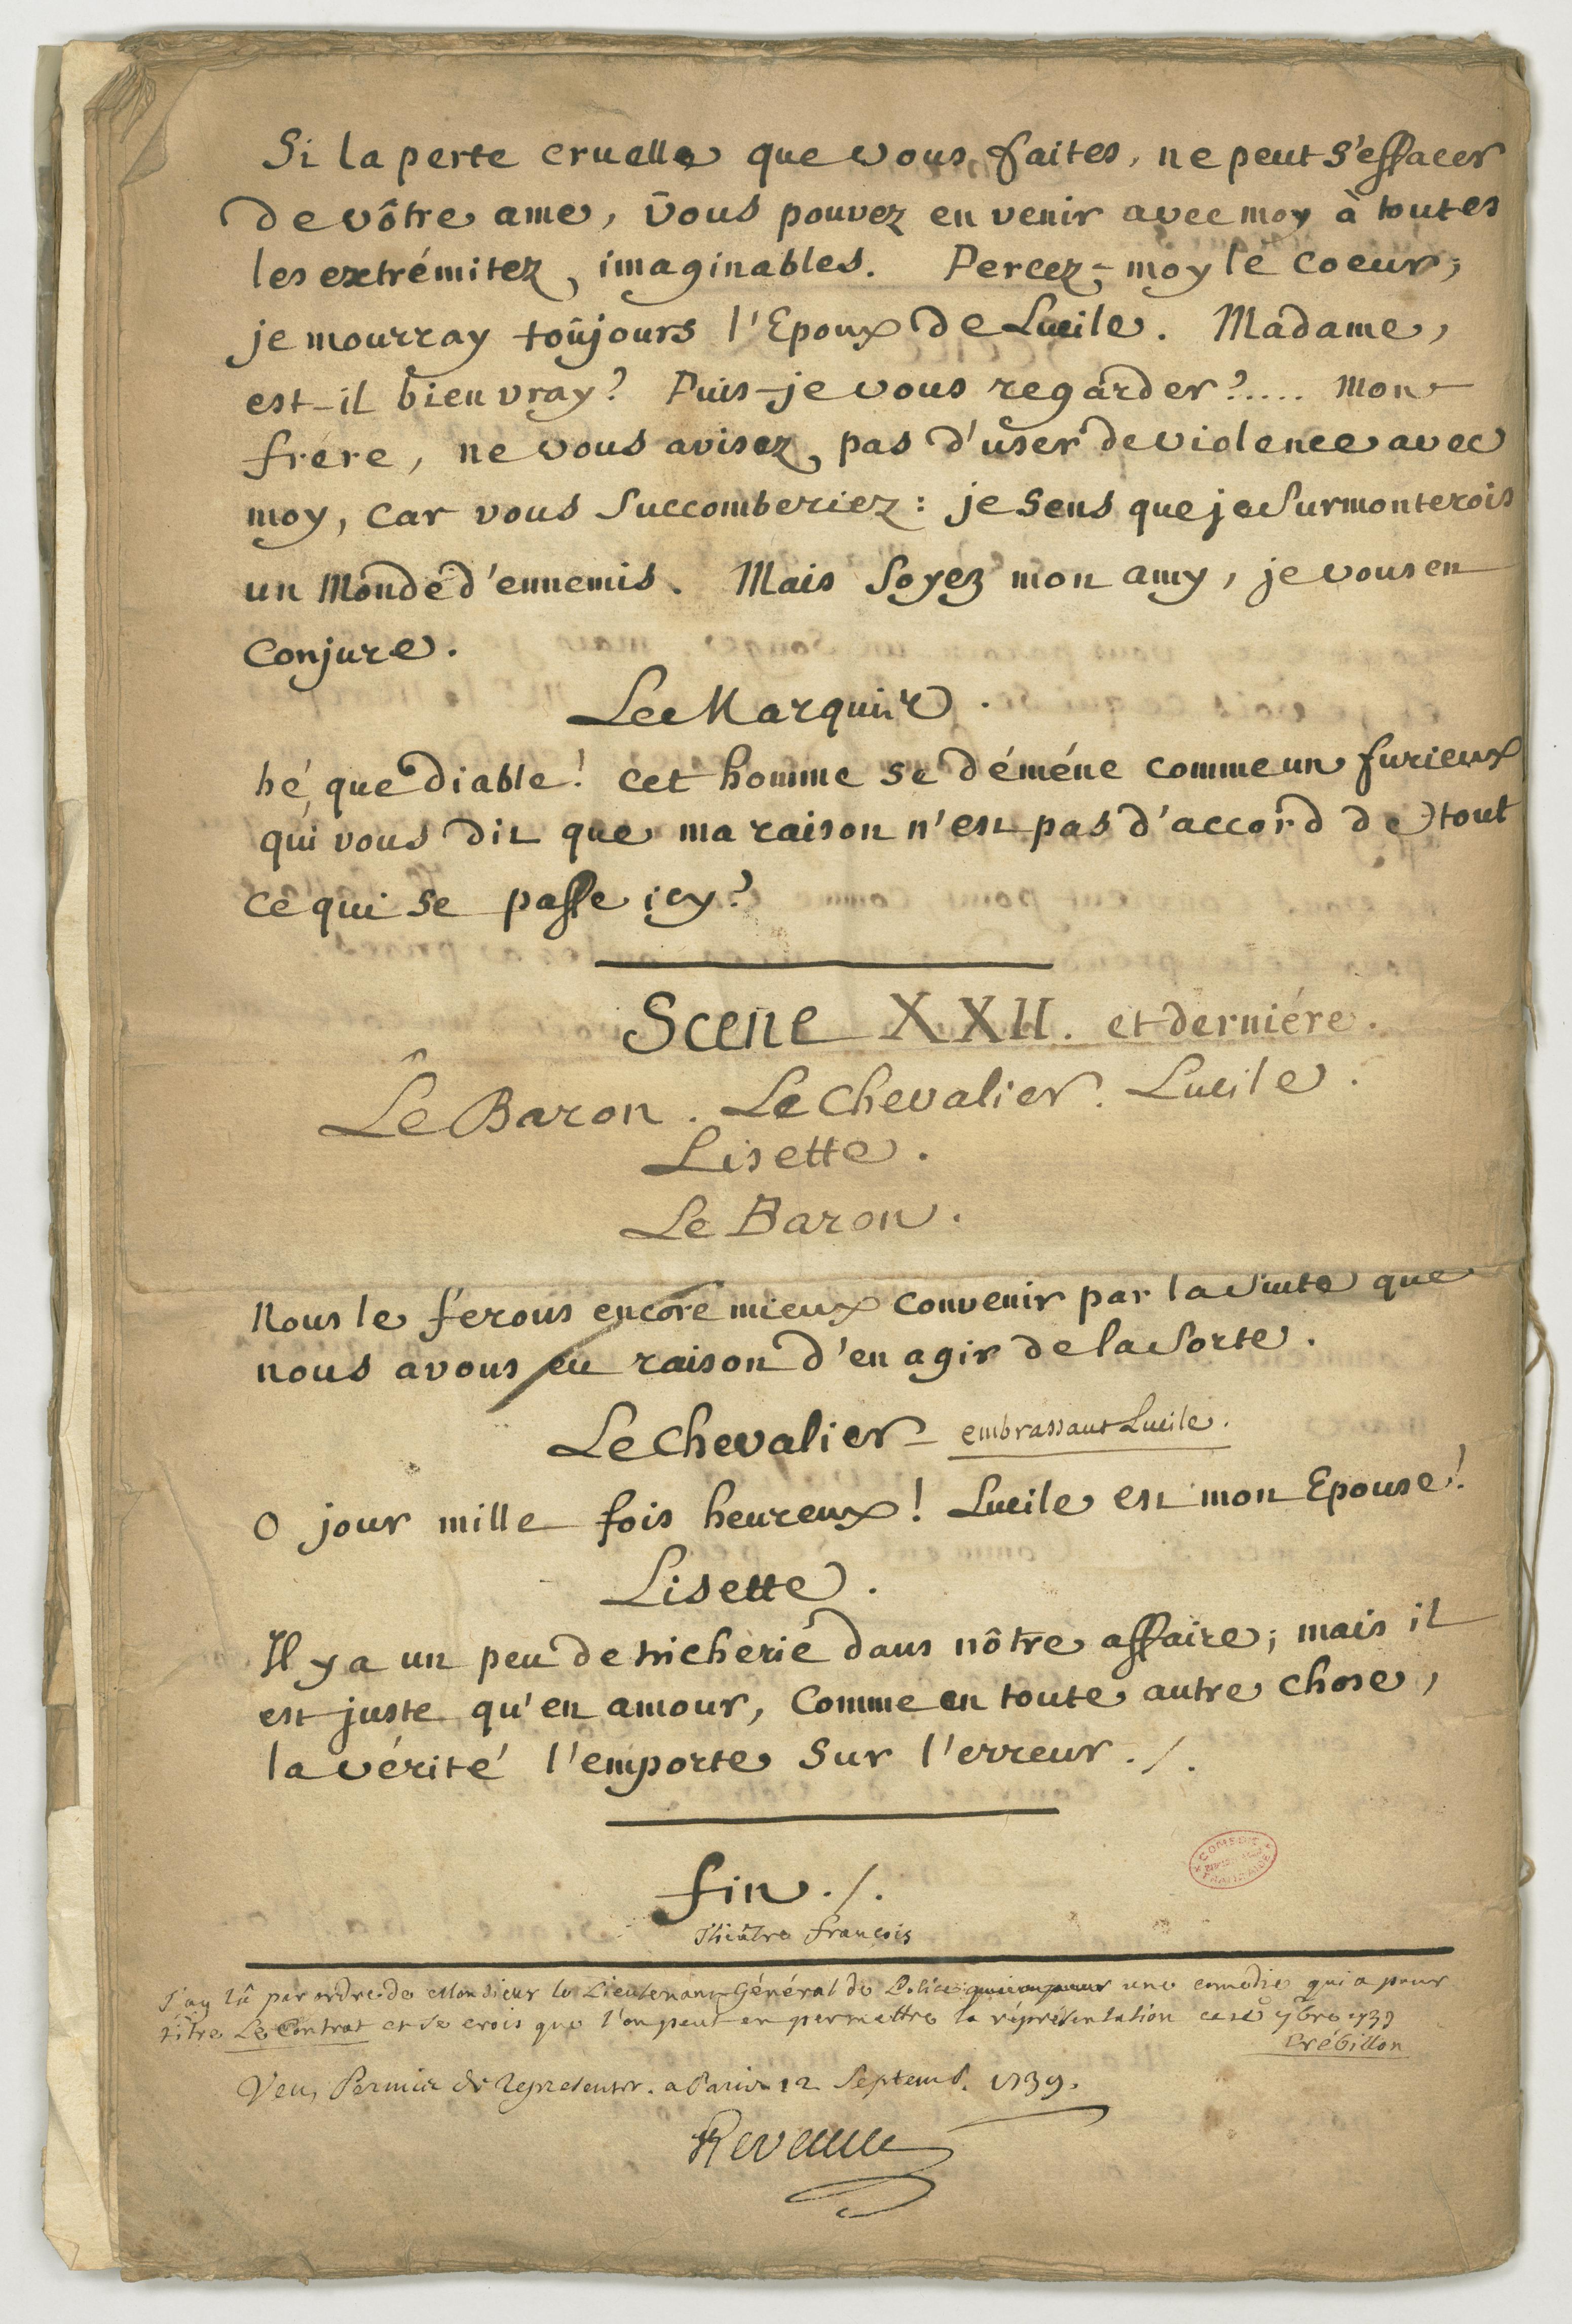 Si la perte cruelle que vous faites, ne peut s'effacer
de vôtre ame, vous pouvez en venir avec moy à toutes
les extrémitez imaginables. Percez-moy le coeur;
je mourray toûjours l'Epoux de Lucile. Madame,
est-il bien vray? Puis-je vous regarder?.... mon
frére, ne vous avisez pas d'user de violence avec
moy, car vous Succomberiez: je sens que je Surmonterois
un Monde d'ennemis. Mais Soyez mon amy, je vous en
Conjure.
Le Marquis.
hé, que diable! cet homme se déméne comme un furieux
qui vous dit que ma raison n'est pas d'accord de tout
ce qui se passe icy?
Scene XXII. et derniére.
Le Baron. Le Chevalier. Lucile.
Lisette.
Le Baron.
Nous le ferons encore mieux convenir par la Suite que
nous avons eu raison d'en agir de la Sorte.
Le Chevalier - embrassant Lucile.
O jour mille fois heureux! Lucile est mon Epouse!
Lisette.
Il y a un peu de tricherie dans nôtre affaire; mais il
est juste qu'en amour, Comme en toute autre chose,
la vérité l'emporte Sur l'erreur./.
fin./.
Théâtre françois
J'ay lû par ordre de Monsieur le Lieutenant Général de Police une comedie qui a pour
titre Le Contrat et Je crois que l'on peut en permettre la représentation ce 7bre 1739
Crébillon
Veu, Permis de representer. a Paris 12 Septemb. 1739.
COMEDIE FRANÇAISE